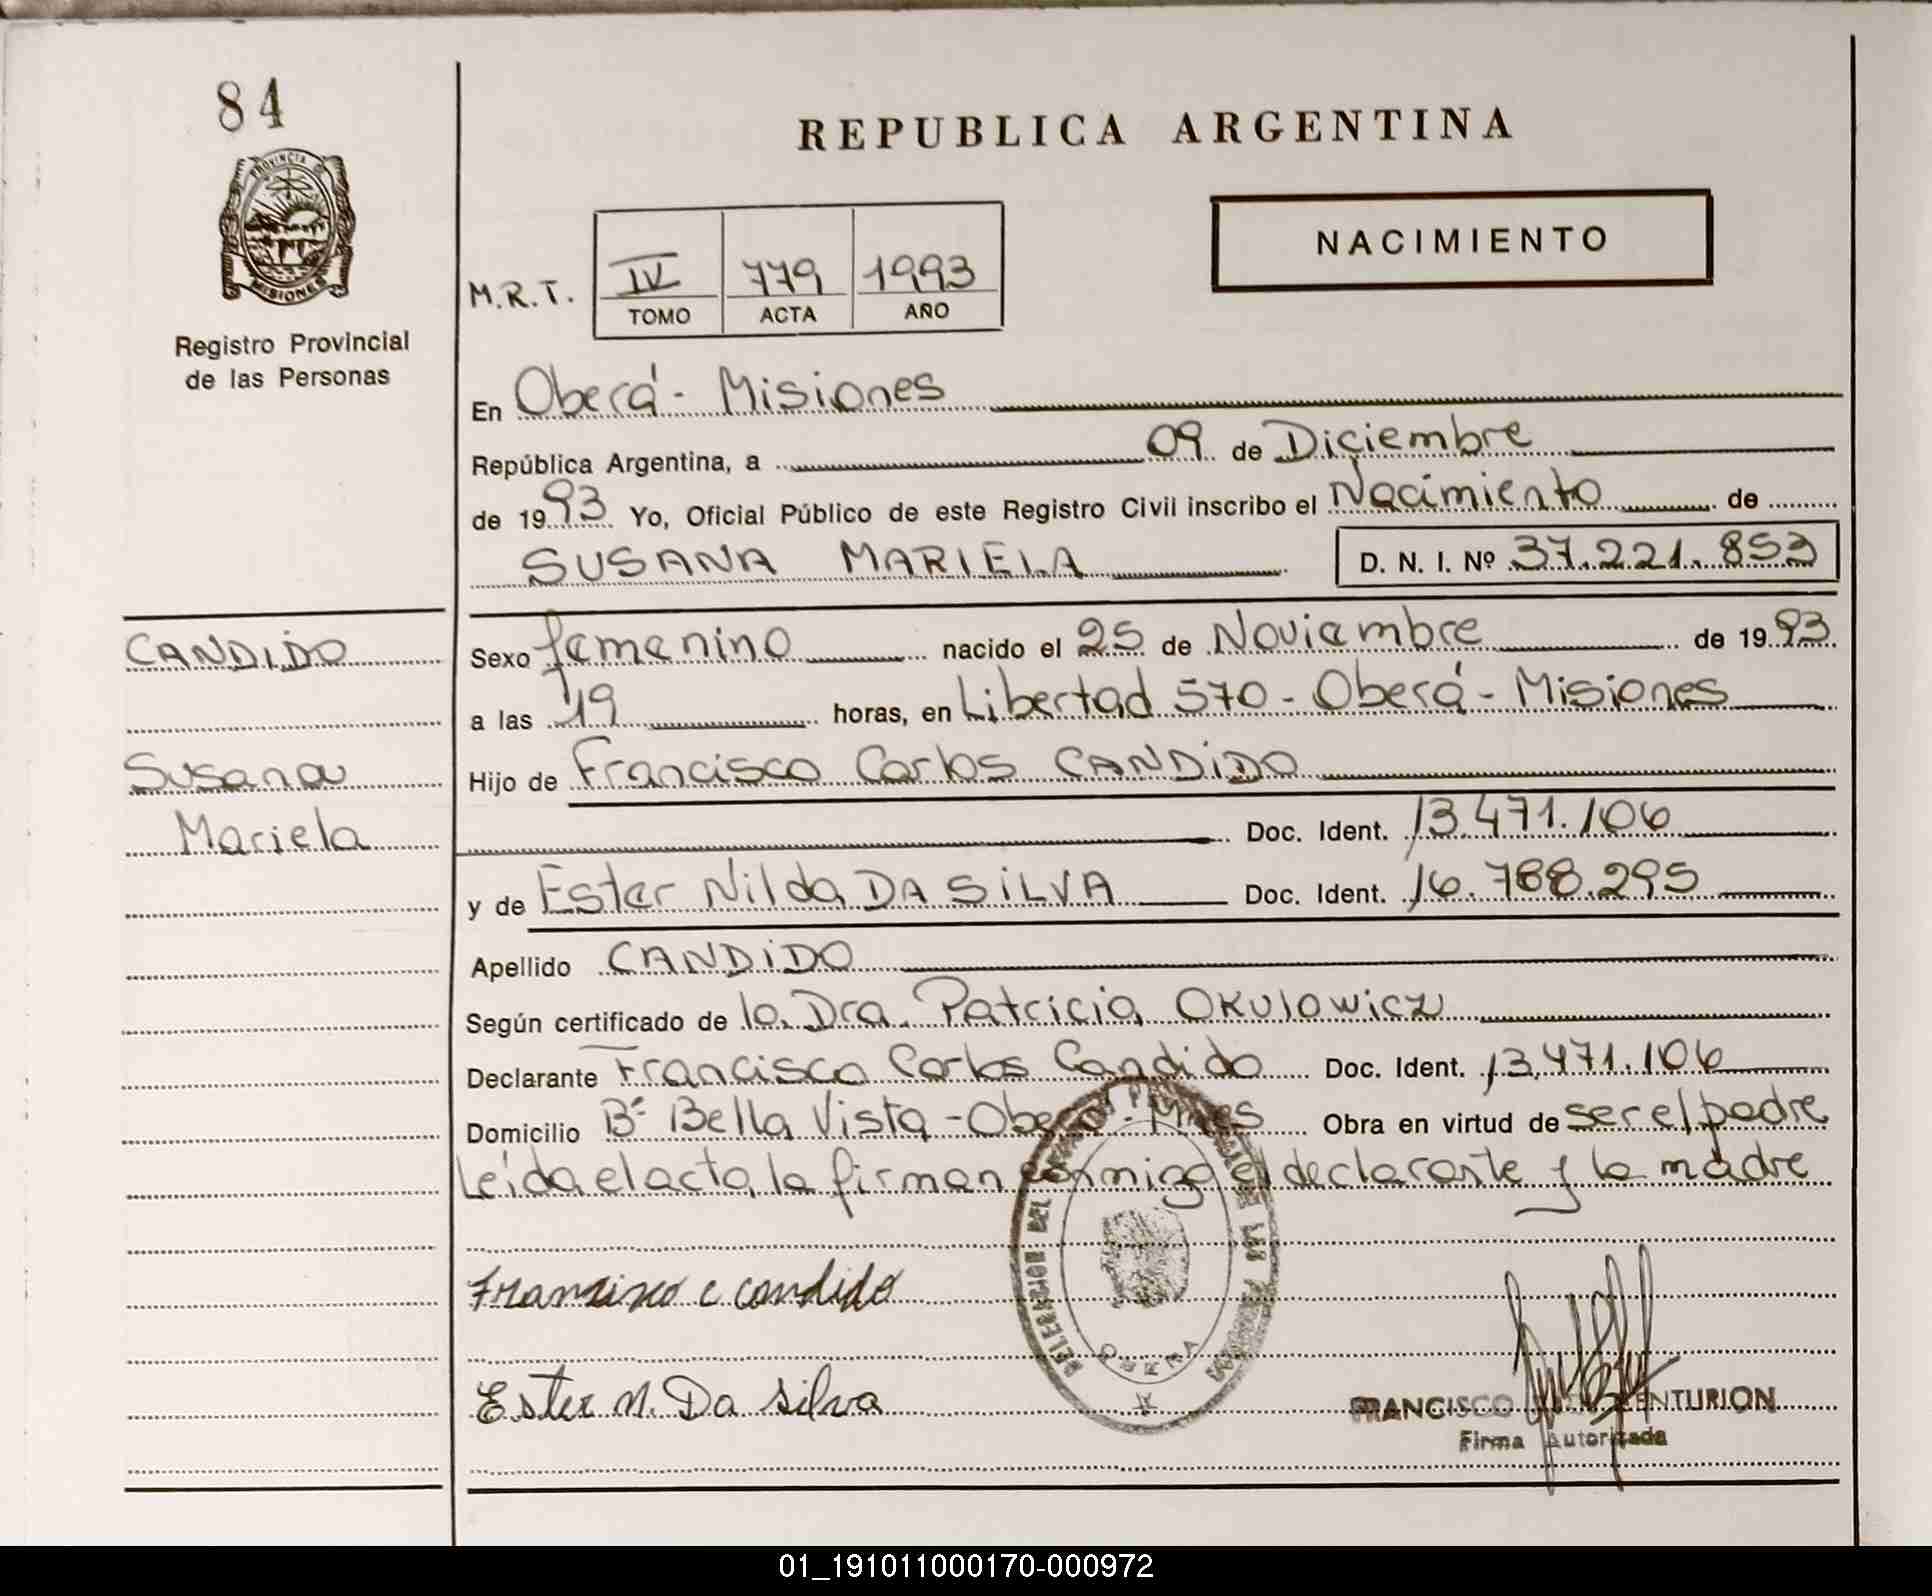 84
PROVINCIA
MISIONES
Registro Provincial
de las Personas
CANDIDO
Susana
Mariela
REPUBLICA ARGENTINA
NACIMIENTO
M.R.T. IV 779 1993
TOMO ACTA AÑO
En Oberá - Misiones
República Argentina, a 09 de Diciembre
de 1993 Yo, Oficial Público de este Registro Civil inscribo el Nacimiento de
SUSANA MARIELA D. N. I. Nº 37.221.853
Sexo femenino nacido el 25 de Noviembre de 1993
a las 19 horas, en Libertad 570 - Oberá - Misiones
Hijo de Francisco Carlos CANDIDO
Doc. Ident. 13.471.106
y de Ester Nilda DA SILVA Doc. Ident. 16.788.295
Apellido CANDIDO
Según certificado de la Dra. Patricia OKULOWICZ
Declarante Francisco Carlos Candido Doc. Ident. 13.471.106
Domicilio Bº Bella Vista - Oberá - Mnes Obra en virtud de ser el padre
Leída el acta, la firman conmigo el declarante y la madre
Francisco c candido
Ester N. Da Silva
OBERA
FRANCISCO CENTURION
Firma Autorizada
01_191011000170-000972